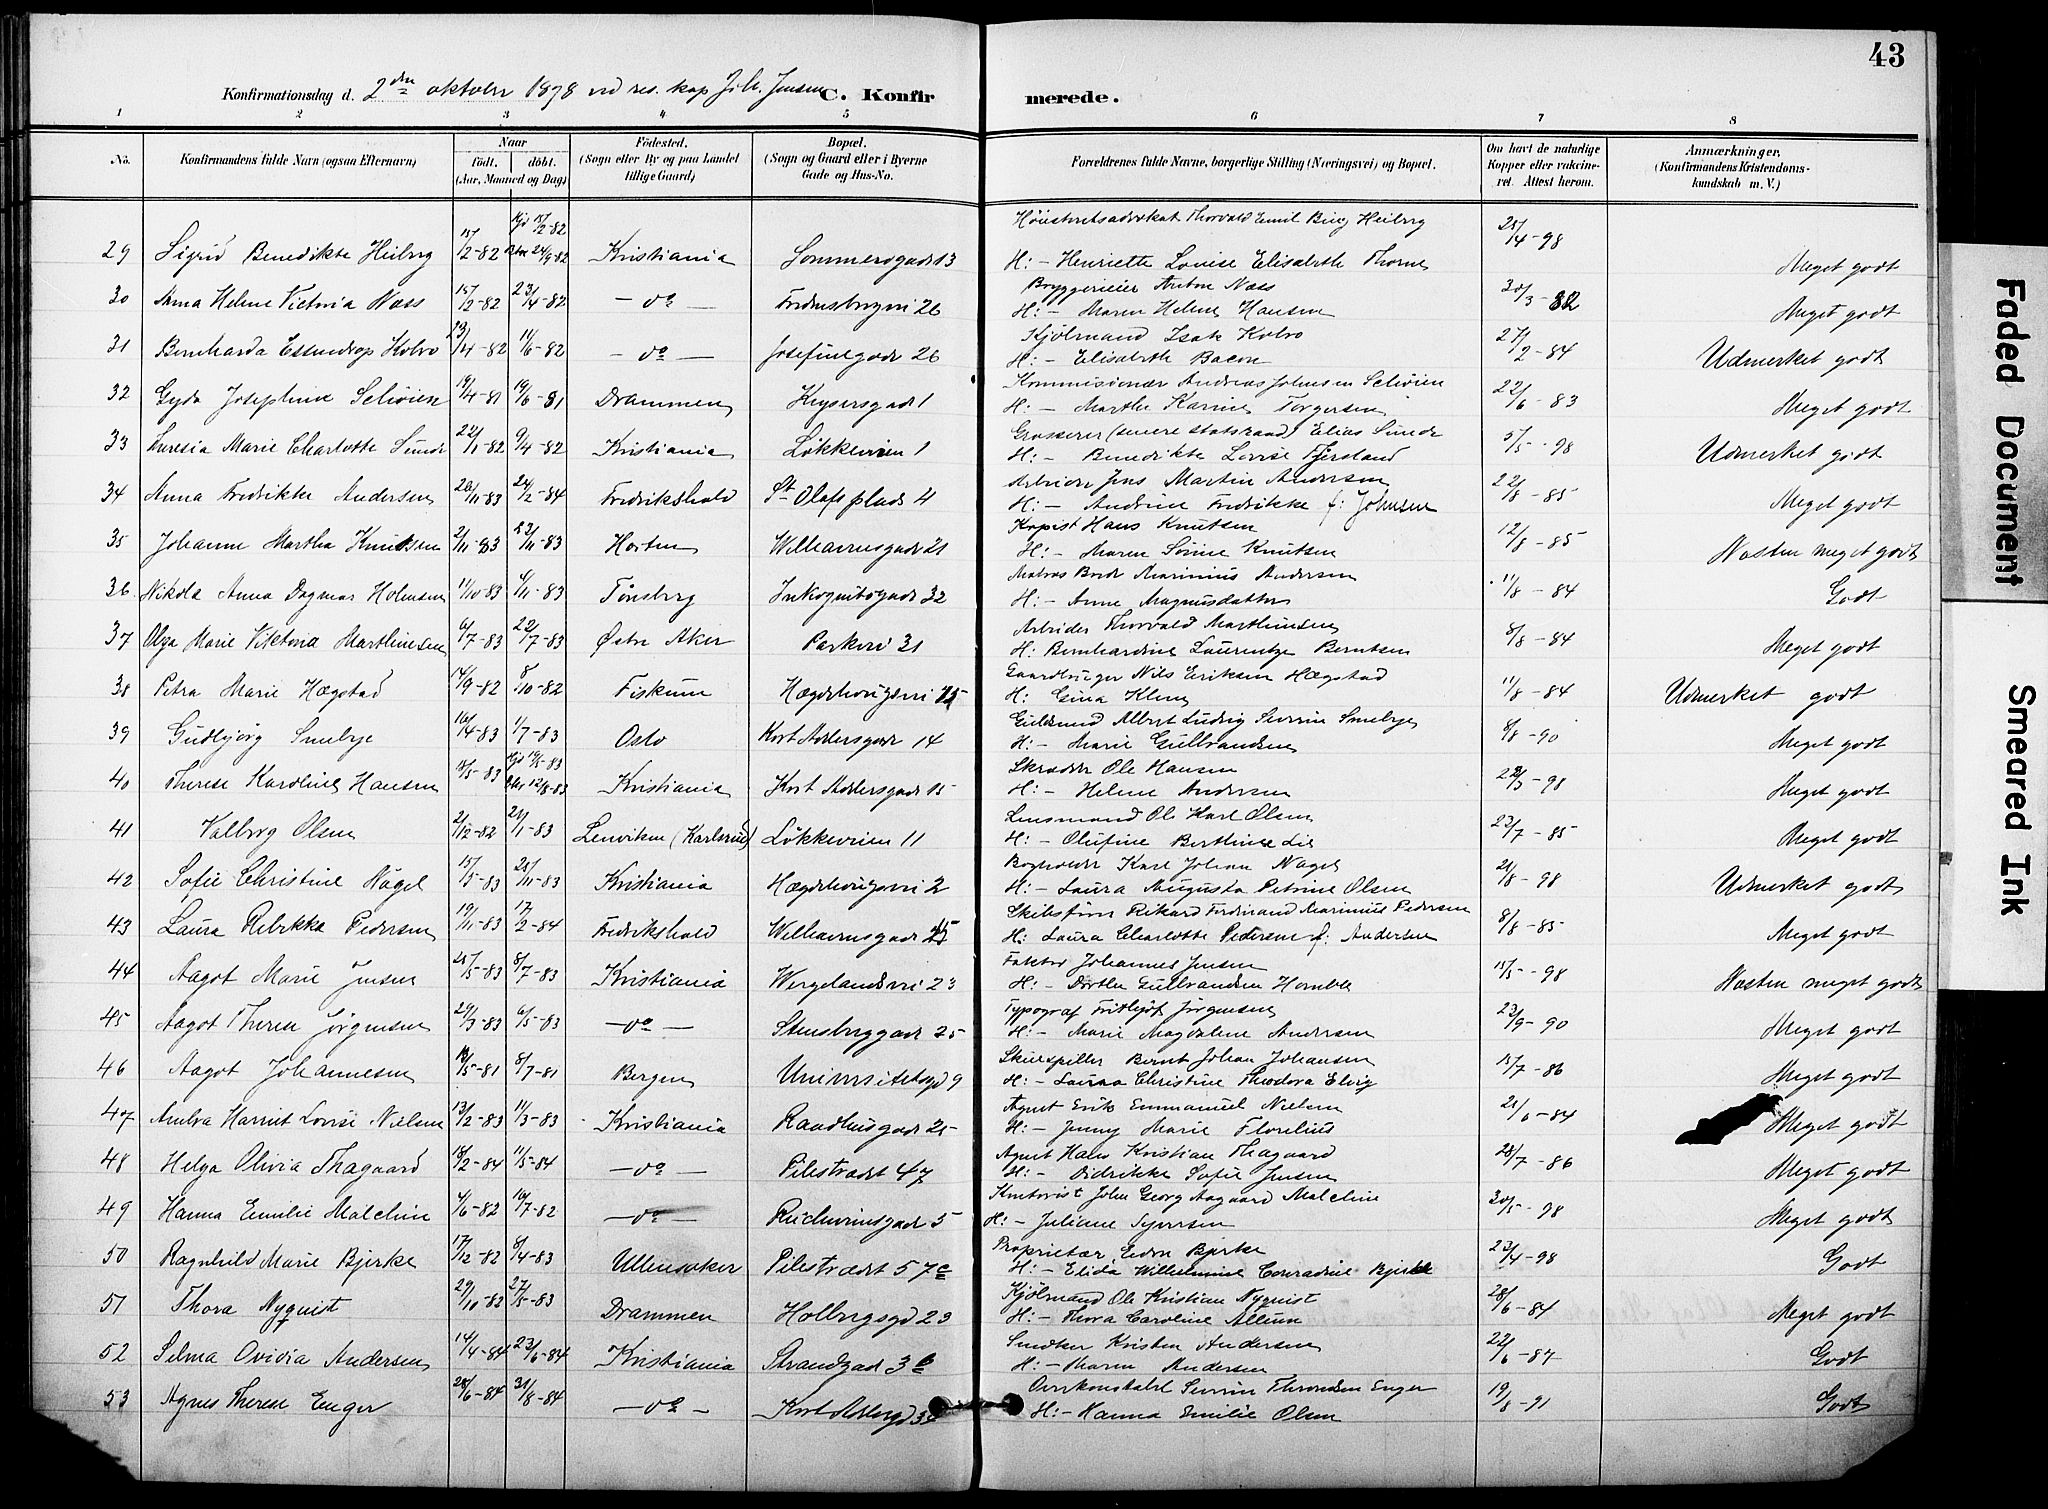 43
Konfirmationsdag d. 2den oktober 1898 ved res. kap Joh. Jensen C. Konfirmerede.
1 2 3 4 5 6 7 8
No. Konfirmandens fulde Navn (ogsaa Efternavn) Naar født, døbt. (Aar, Maaned og Dag) Fødested. (Sogn eller By og paa Landet tillige Gaard) Bopæl. (Sogn og Gaard eller i Byerne Gade og Hus-No. Forældrenes fulde Navne, borgerlige Stilling (Næringsvei) og Bopæl. Om havt de naturlige Kopper eller vakcineret. Attest herom. Anmærkninger, (Konfirmandens Kristendomskundskab m. V.)
Høiesteretsadvokat Thorvald Emil Bing Heiberg
29 Sigrid Benedikte Heiberg 15/2-82 Kristiania Sommersgade 13 H:- Henriette Louise Elisabeth Thorne 25/4-98 Meget godt
Bryggerieier Anton Næss
30 Anna Helene Victoria Næss 15/2-82 23/4-82 - do - Fredensborgvei 26 H:- Maren Helene Hansen Meget godt
Kjølmand Isak Kobro
31 Bernharda Essendrop Kobro 23/4-82 11/6-82 - do - Josefinegade 26 H:- Elisabeth Bacon 27/2-84 Udmerket godt
Kommisionær Andreas Johnsen Seliøien
32 Gyda Josephine Seliøien 19/4-81 19/6-81 Drammen Keysersgade 1 H:- Marthe Karine Torgersen 22/6-83 Meget godt
Grosserer (senere statsraad) Elias Sunde
33 Theresia Marie Charlotte Sunde 22/1-82 9/4-82 Kristiania Løkkeveien 1 H:- Benedikte Lovise Fjersland 5/5-98 Udmerket godt
Arbeider Jens Martin Andersen
34 Anna Fredrikke Andersen 20/11-83 24/2-84 Fredrikshald St Olafs plads 4 H:- Andrine Fredrikke f: Johnsen 22/8-85 Meget godt
Kopist Hans Knutsen
35 Johanne Martha Knudsen 2/11-83 23/11-83 Horten Welhavensgade 21 H:- Maren Sørine Knutsen 12/8-85 Næsten meget godt
Matros Bredr Marinius Andersen
36 Nikola Anna Dagmar Holmsen 11/10-83 4/11-83 Tønsberg Inkognitogade 32 H:- Anne Magnusdatter 11/8-84 Godt
Arbeider Thorvald Marthinsen
37 Olga Marie Viktoria Marthinsen 6/7-83 22/7-83 Østre Aker Parkvei 31 H: Bernhardine Laurentze Berntsen 8/8-84 Meget godt
Gaardbruger Nils Eriksen Hægstad
38 Petra Marie Hægstad 14/9-82 8/10-82 Fiskum Hægdehougsvei 15 H: Gina Kleve 11/8-84 Udmerket godt
Guldsmed Albert Ludvig Severin Smebye
39 Gudbjørg Smebye 16/4-83 1/7-83 Oslo Kort Adelersgade 14 H:- Marie Gulbrandsen 8/8-90 Meget godt
Skrædder Ole Hansen
40 Therese Karoline Hansen 18/5-83 Kristiania Kort Adelersgade 15 H:- Helene Andersen 22/3-98 Meget godt
Lensmand Ole Karl Olsen
41 Valborg Olsen 21/12-82 21/1-83 Lenviken (Karlsrud) Løkkeveien 11 H:- Olufine Berthine Lie 23/7-85 Meget godt
Bogholder Karl Johan Nagel
42 Sofie Christine Nagel 15/5-83 25/11-83 Kristiania Hægdehougsvei 2 H:- Laura Augusta Petrine Olsen 21/8-98 Udmerket godt
Skibsfører Rikard Ferdinand Marinius Pedersen
43 Laura Rebekka Pedersen 19/11-83 17/2-84 Fredrikshald Welhavensgade H: Laura Charlotte Pedersen f: Andersen 8/8-85 Meget godt
Faktor Johannes Jensen
44 Aagot Marie Jensen 25/5-83 8/7-83 Kristiania Wergelandsvei 23 H:- Dorthe Gulbrandsen Homble 15/5-98 Næsten meget godt
Typograf Fritjof Jørgensen
45 Aagot Therese Jørgensen 29/3-83 6/5-83 - do - Stensberggade 25 H:- Marie Magdalene Andersen 23/9-90 Meget godt
Skuespiller Bernt Johan Johansen
46 Aagot Johannesen 18/5-81 8/7-81 Bergen Universitetsgd 9 H:- Laura Christine Theodora Elvig 15/7-86 Meget godt
Agent Erik Emmanuel Nielsen
47 Andrea Harriet Lovise Nielsen 13/2-83 11/3-83 Kristiania Raadhusgade 25 H:- Jenny Marie Florelius 21/6-84 Meget godt
Agent Halvor Kristian Thagaard
48 Helga Olivia Thagaard 18/2-84 11/5-84 - do - Pilestrædet 47 H:- Didrikke Sofie Jensen 28/7-86 Meget godt
Kontorist John Georg Aagaard Malchin
49 Hanna Emilie Malchin 4/6-82 16/7-82 - do - Rudeveiensgade 5 H:- Juliane Syversen 30/5-98 Meget godt
Proprietær Edvr Bjerke
50 Ragnhild Marie Bjerke 17/12-82 8/4-83 Ullensaker Pilestrædet 57c H:- Elida Wilhelmine Conradine Bjerke 23/4-98 Godt
Kjølmand Ole Kristian Nyquist
51 Thora Nyquist 29/10-82 27/5-83 Drammen Holbergsgd 23 H:- Thora Caroline Allum 28/6-84 Meget godt
Snedker Kristen Andersen
52 Selma Ovidia Andersen 14/4-84 23/6-84 Kristiania Strandgad 3 H:- Maren Andersen 22/6-87 Godt
Overkonstabel Severin Throndsen Enger
53 Agnes Therese Enger 28/6-84 31/8-84 - do - Kort Adelergd H:- Hanna Emilie Olsen 19/8-91 Godt
Faded Document
Smeared Ink